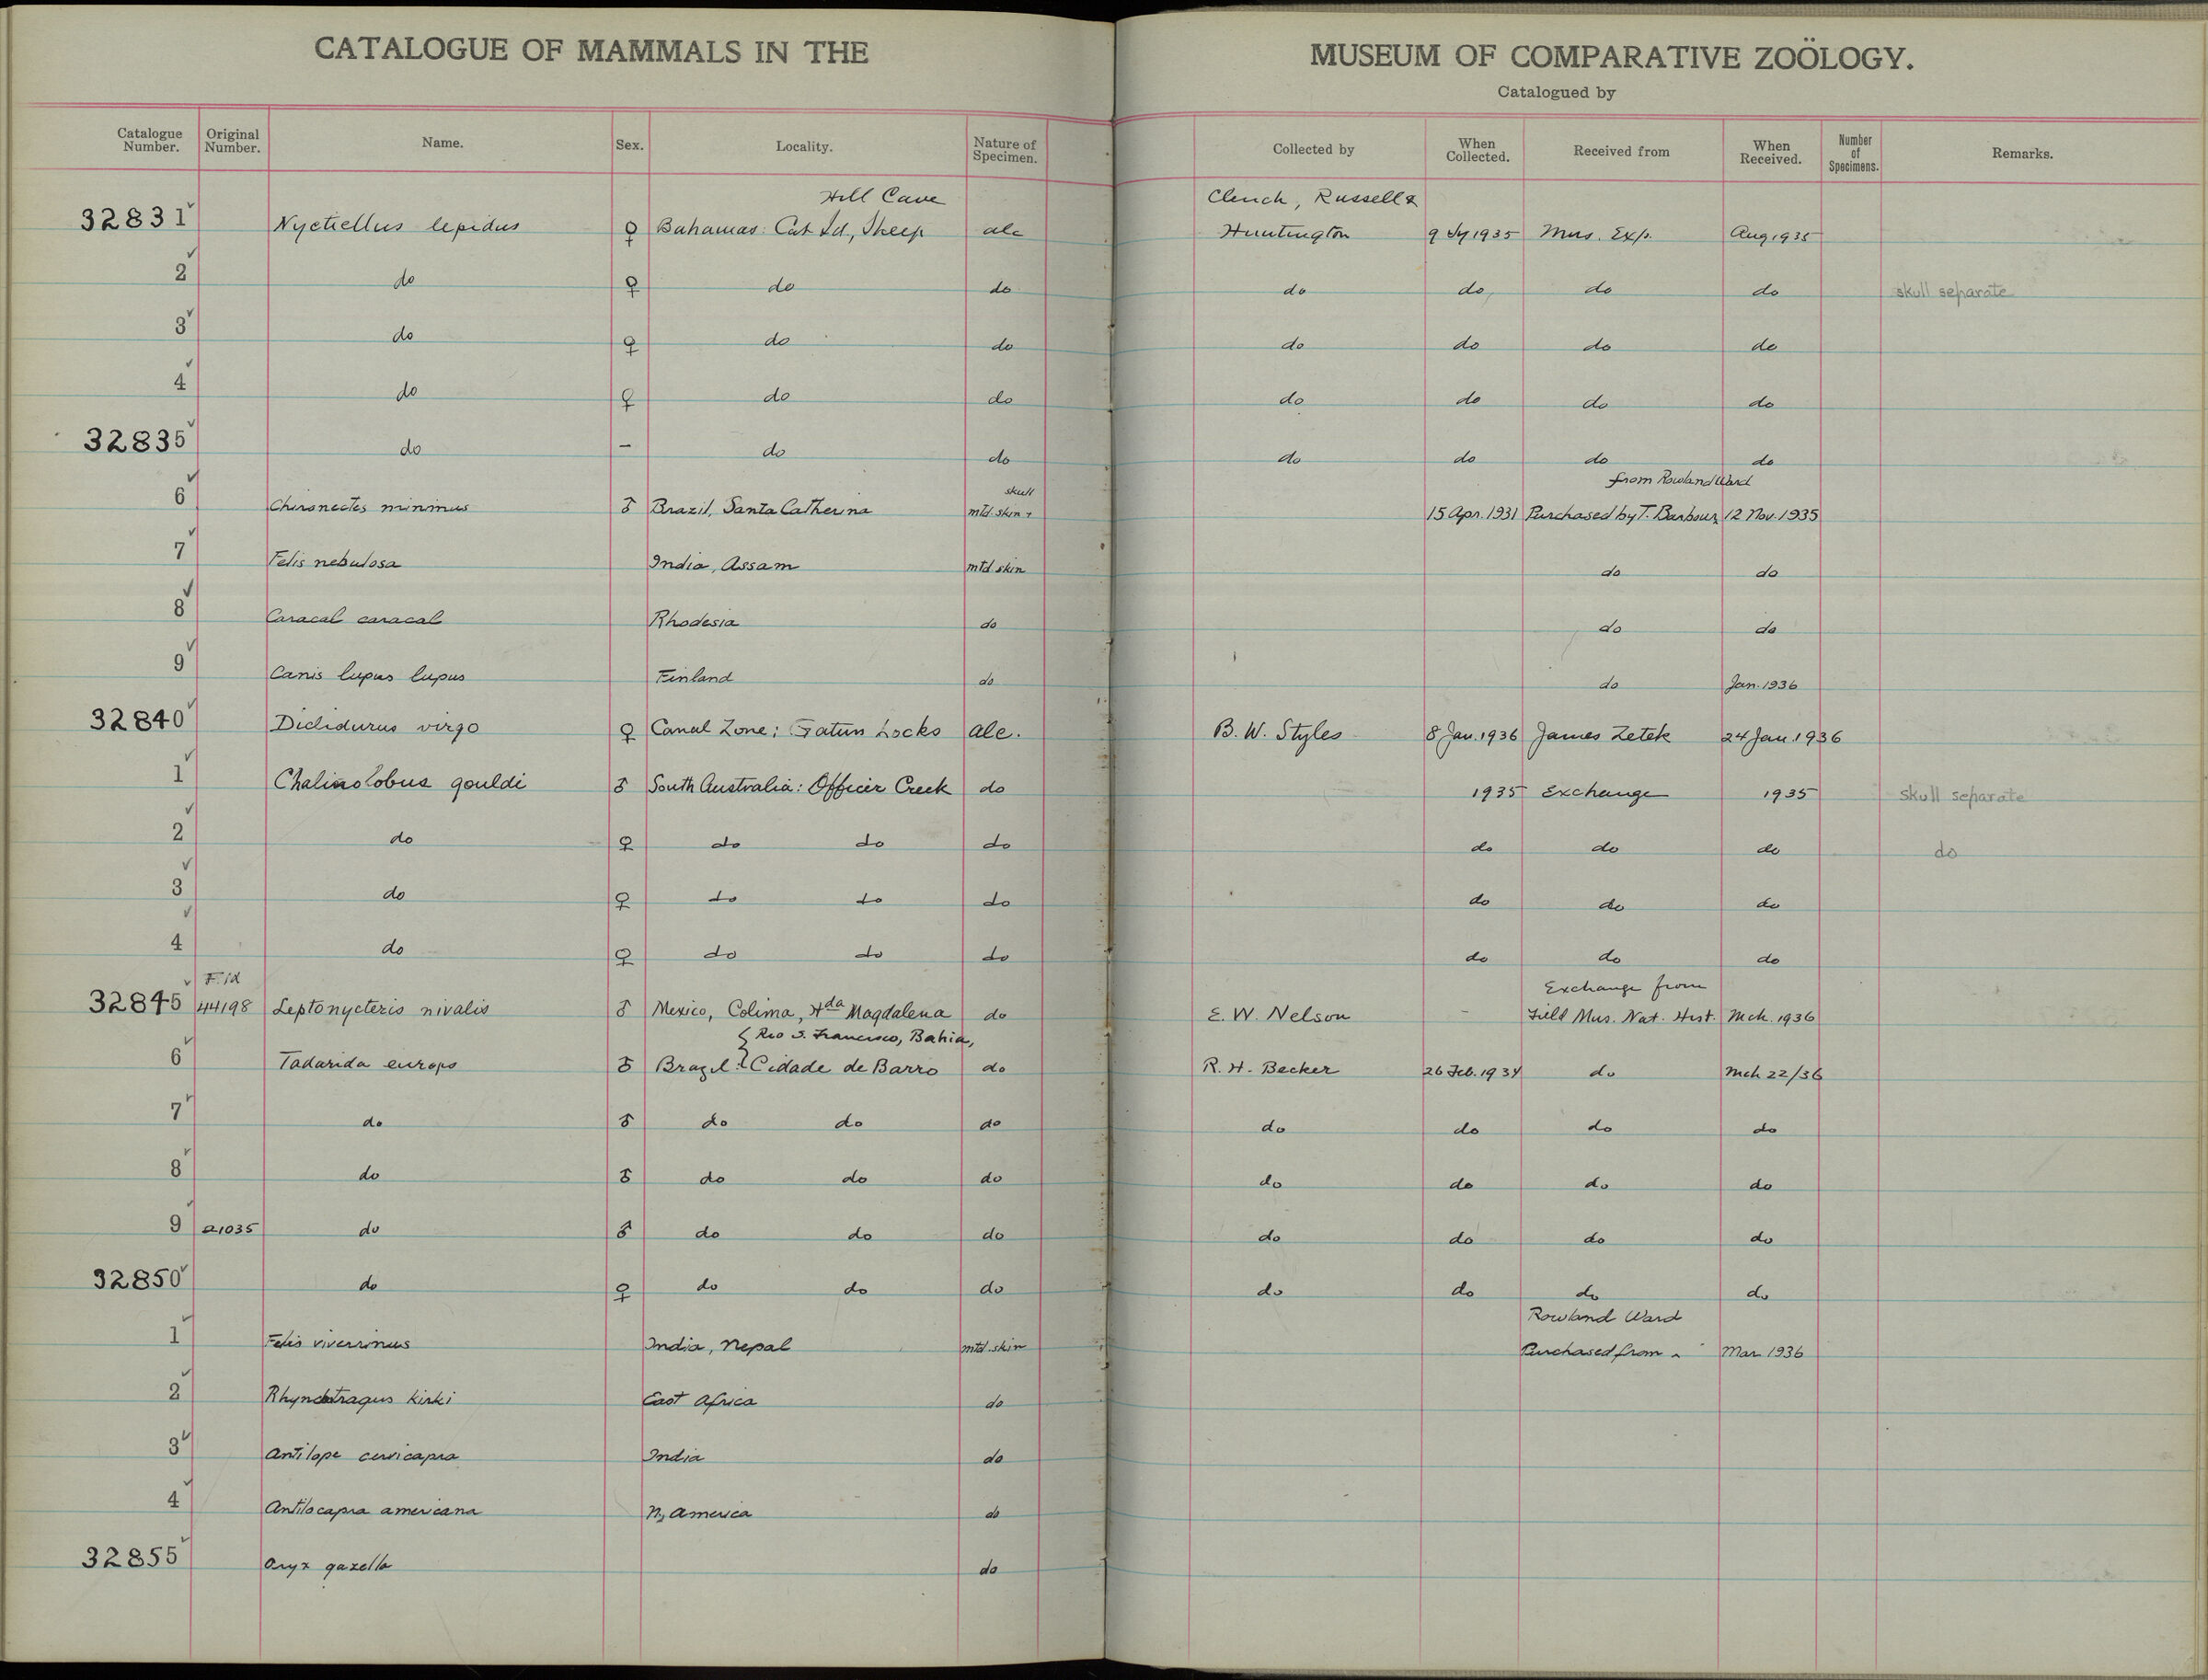 CATALOGUE OF MAMMALS IN THE MUSEUM OF COMPARATIVE ZOÖLOGY.
Catalogued by
Catalogue Number. Original Number. Name. Sex. Locality. Nature of Specimen. Collected by When Collected. Received from When Received. Number of Specimens. Remarks.
Hill Cave Clench, Russell &
32831 Nyctiellus lepidus ♀ Bahamas: Cat Id., Sheep alc Huntington 9 Jy 1935 Mus. Exp. Aug 1935
2 do ♀ do do do do do do skull separate
3 do ♀ do do do do do do
4 do ♀ do do do do do do
32835 do – do do do do do do
skull from Rowland Ward
6 Chironectes minimus ♂ Brazil, Santa Catherina mtd. skin + 15 Apr. 1931 Purchased by T. Barbour 12 Nov. 1935
7 Felis nebulosa India, Assam mtd. skin do do
8 Caracal caracal Rhodesia do do do
9 Canis lupus lupus Finland do do Jan. 1936
32840 Diclidurus virgo ♀ Canal Zone; Gatun Locks alc. B. W. Styles 8 Jan. 1936 James Zetek 24 Jan. 1936
1 Chalinolobus gouldi ♂ South Australia: Officer Creek do 1935 Exchange 1935 skull separate
2 do ♀ do do do do do do do
3 do ♀ do do do do do do
4 do ♀ do do do do do do
F.Id Exchange from
32845 44198 Leptonycteris nivalis ♂ Mexico, Colima, Hda Magdalena do E. W. Nelson – Field Mus. Nat. Hist. Mch. 1936
Rio S. Francisco, Bahia,
6 Tadarida europs ♂ Brazil: Cidade de Barro do R. H. Becker 26 Feb. 1934 do Mch 22/36
7 do ♂ do do do do do do do
8 do ♂ do do do do do do do
9 21035 do ♂ do do do do do do do
32850 do ♀ do do do do do do do
Rowland Ward
1 Felis viverrinus India, Nepal mtd. skin Purchased from ^ Mar 1936
2 Rhynchotragus kirki East Africa do
3 Antilope cervicapra India do
4 Antilocapra americana N. America do
32855 Oryx gazella do